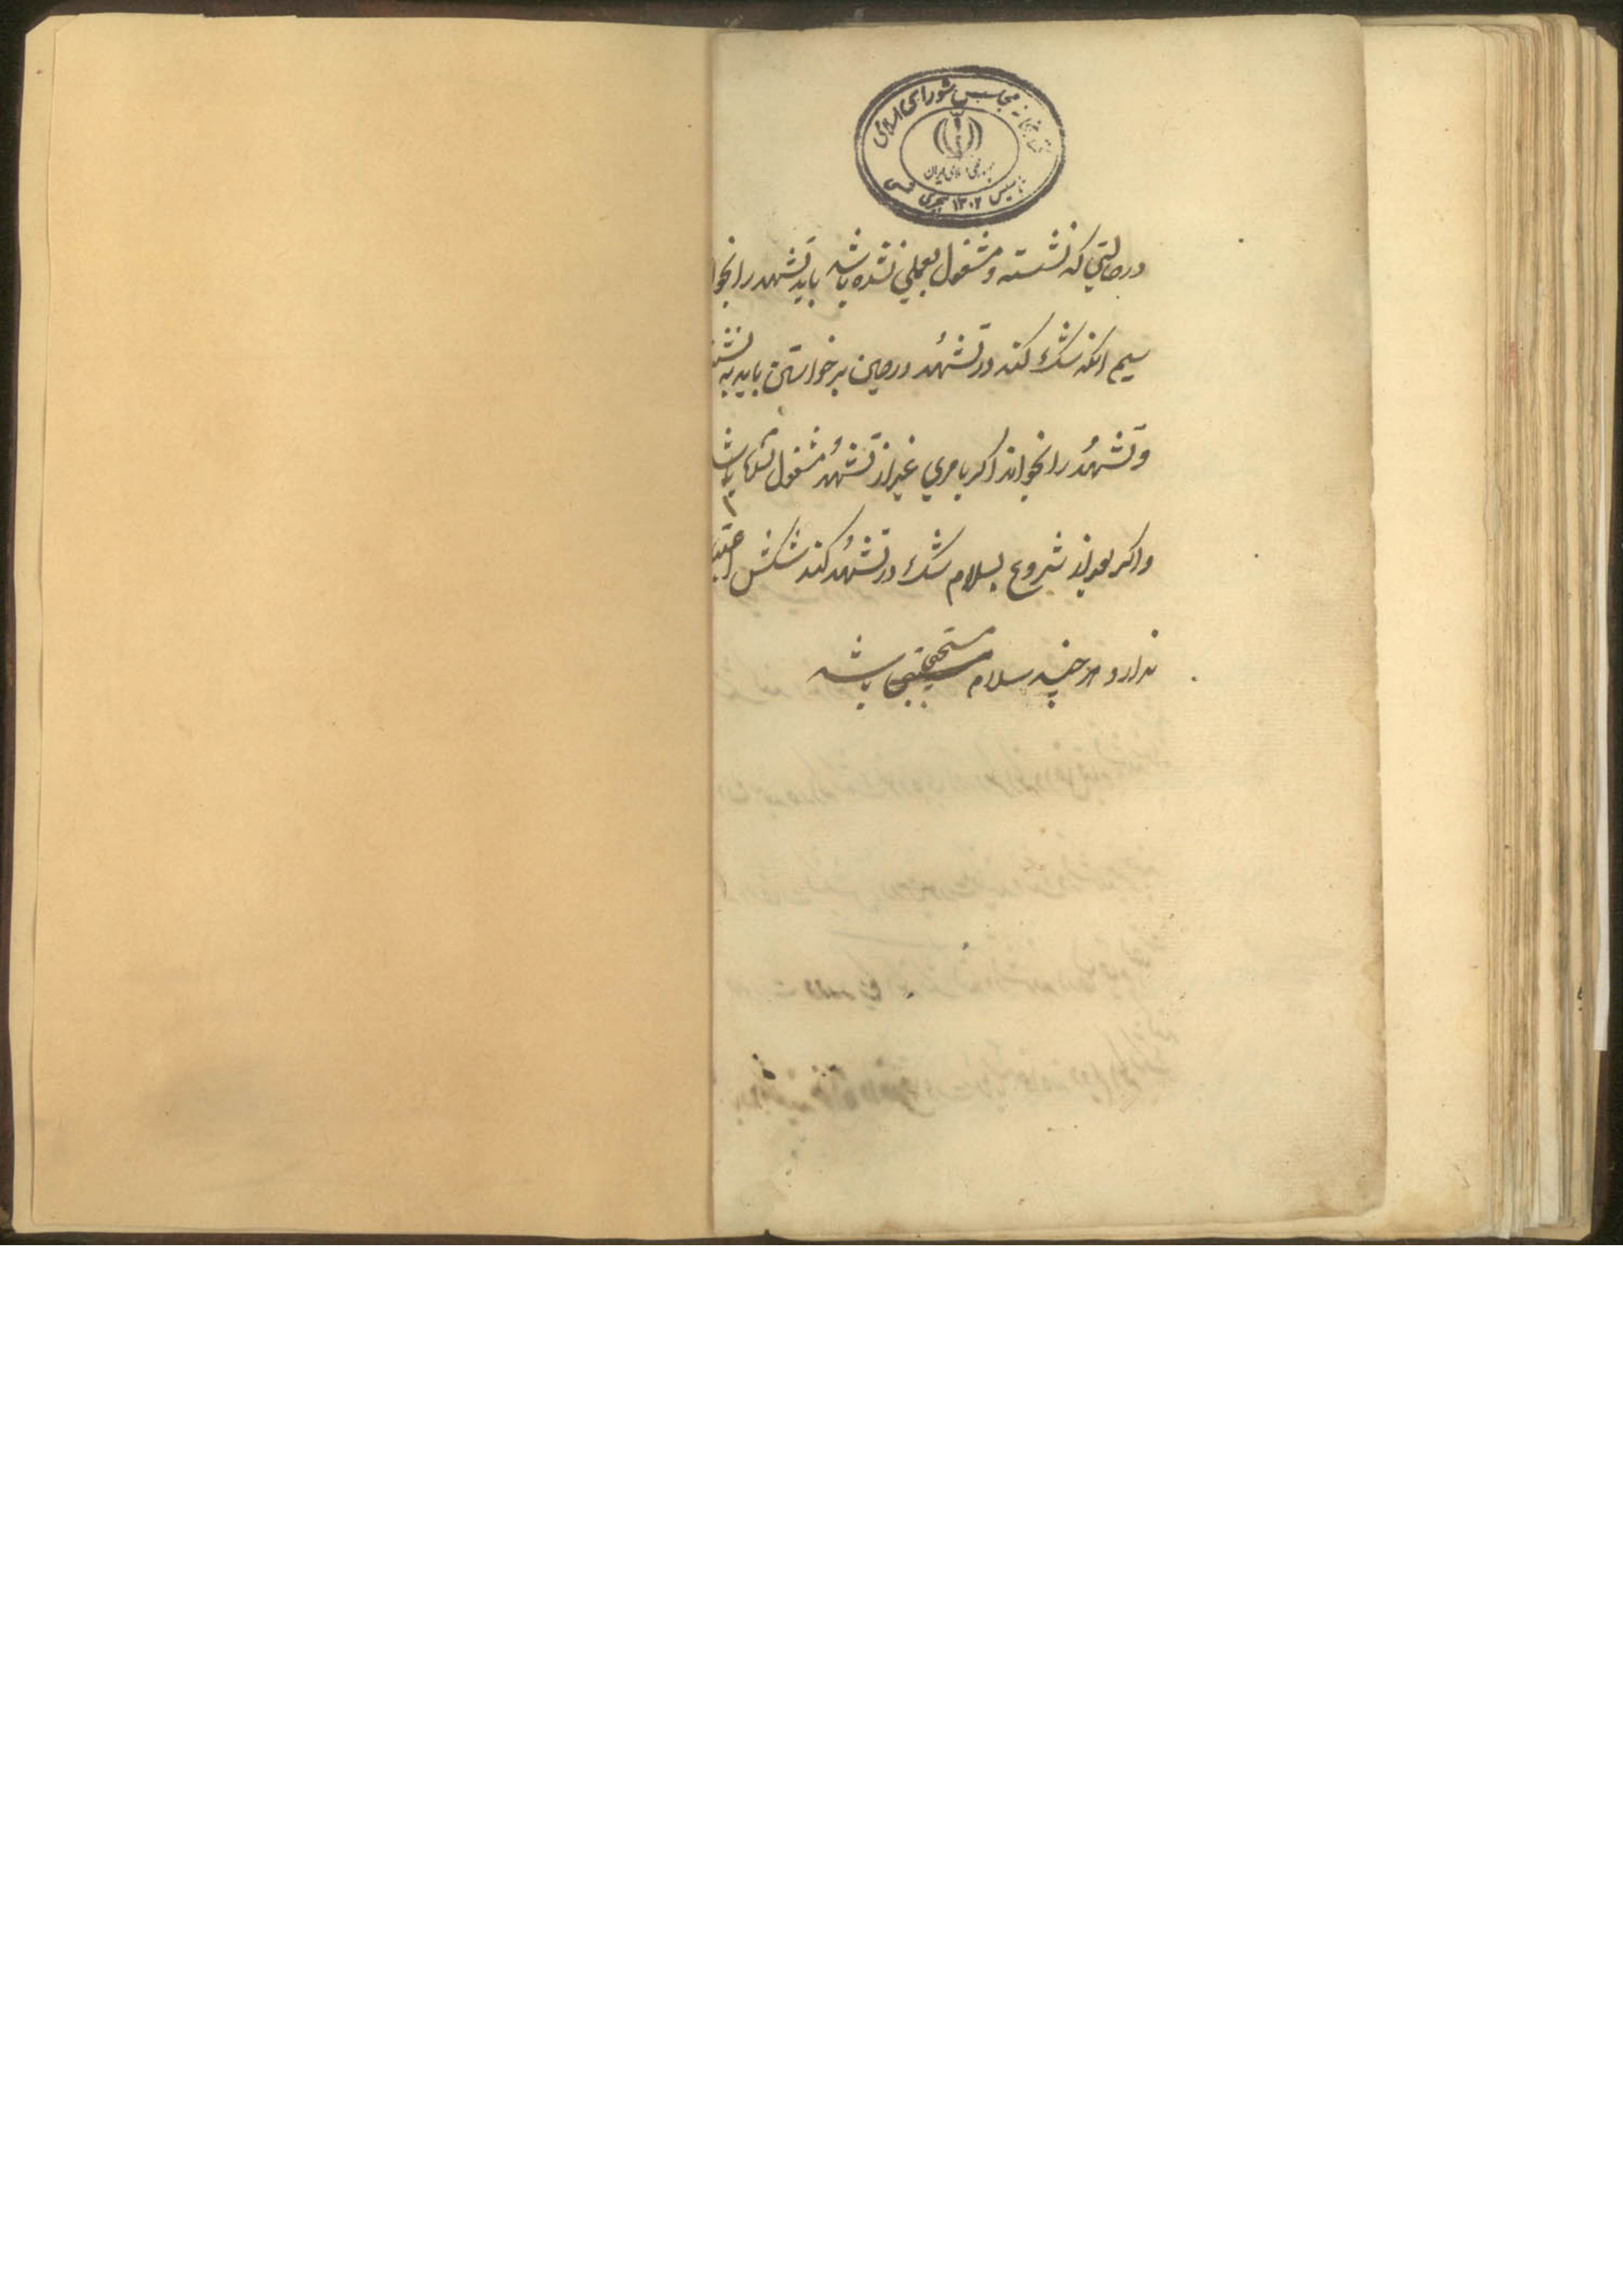 کتابخانه مجلس شورای اسلامی
جمهوری اسلامی ایران
تاسیس ۱۳۰۲ هجری شمسی
در حالتی که نشسته و مشغول بعملی نشده باشد باید تشهد را بخوا
سیم انکه شک کند در تشهد در حین برخواستن باید به
و تشهد را بخواند اکر بامری غیر از تشهد مشغول نشده باشد
و اکر بعد از شروع بسلام شک در تشهد کند شکش
ندارد هر چند سلام مستحبی باشد